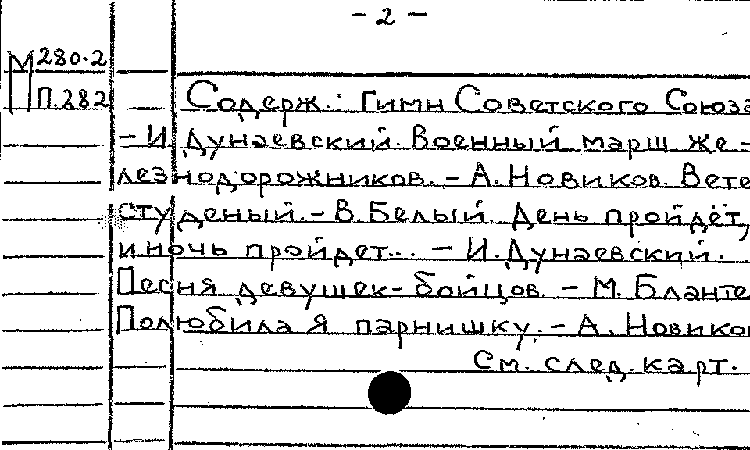 - 2 -
М 280.2
П.282
Содерж.: Гимн Советского Союза
- И. Дунаевский. Военный марш же-
лезнодорожников. - А. Новиков. Вете
студеный. - В. Белый. День пройдёт,
и ночь пройдет... - И. Дунаевский.
Песня девушек-бойцов. - М. Бланте
Полюбила я парнишку. - А. Новико
См. след. карт.